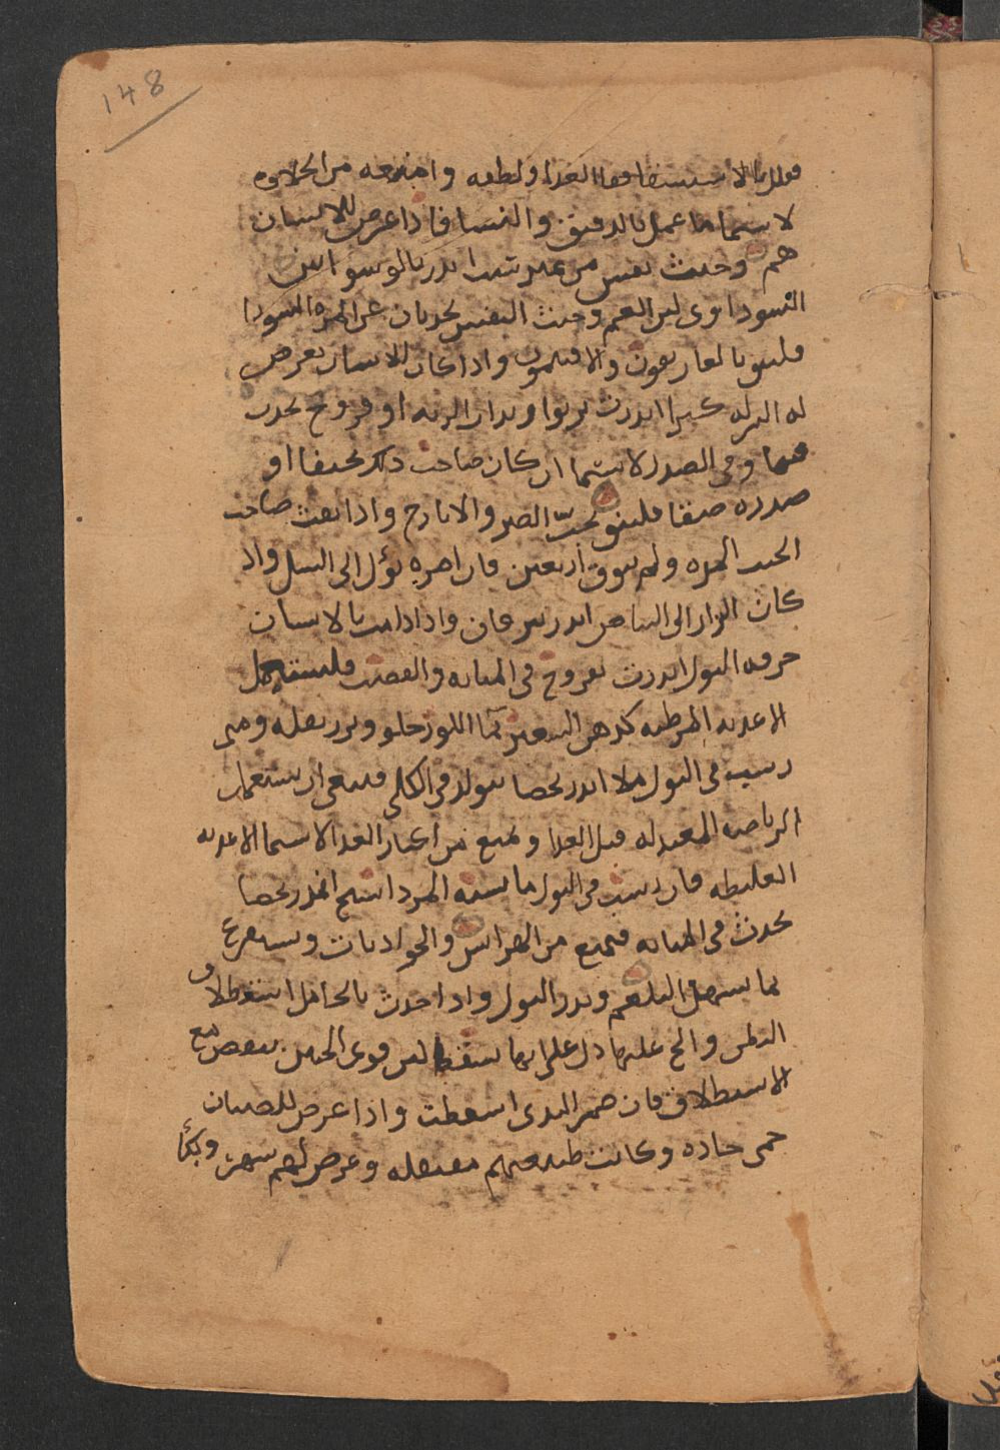 148
الغذا ولطفه وامنعه من الحلاوه
لا سيما ما عمل بالدقيق والنسا فاذا عرض للانسان
هم وخبث نفس من غير سبب انذر بالوسواس
السوداوى لين الغم وخبث النفس يحدثان عن المره السودا
والافتيمون واذا كان الانسان تعرض
له النزله كثيرا انذرت بربو او بذات الريه او قروح تحدث
فيها وفى الصدر لا سيما ان كان صاحب ذلك نحيفا او
صدره ضيقا فلينق بحب الصبر والايارج واذا نفث صاحب
الجنب المده ولم ينق فى اربعين فان امره يؤل الى السل واذ
كان البراز الى البياض انذر بيرقان واذا دامت بالانسان
حرقه البول انذرت بقروح فى المثانه والقضيب فليستعمل
الاغذيه المرطبه كدهن اللوز حلو وبزر بقله ومتى
رسب فى البول رملا انذر بحصا يتولد فى الكلى فينبغى ان يستعمل
الرياضه المعتدله قبل الغدا ويمنع من اكثار الغدا لا سيما الاغديه
الغليظه فان رسب فى البول ما يشبه انذر بحصا
يحدث فى المثانه فيمنع من الهراس والجوادبات ويستفرغ
بما يسهل البلغم ويدر البول واذا حدث بالحامل استطلاق
البطن والح عليها دل على انها تسقط لان قوى الجنين تنقص مع
الاستطلاق فان ضمر الثدى اسقطت واذا عرض للصبيان
حمى حاده وكانت طبيعتهم معتقله وعرض لهم سهر وبكا